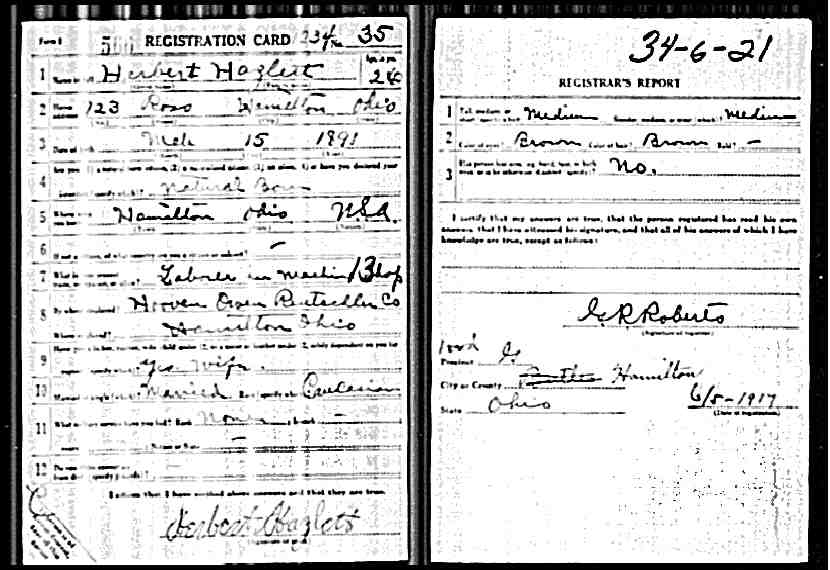 Form 1 500 REGISTRATION CARD 234 No. 35
1 Herbert Hazlett Age, in yrs. 26
2 Home address 123 Ross Hamilton Ohio
3 Date of birth Mch 15 1891
4 Are you (1) a natural born citizen, (2) a naturalized citizen, (3) an alien, (4) or have you declared your
intention (specify which)? Natural Born
5 Where were you born? Hamilton Ohio USA.
6 If not a citizen, of what country are you a citizen or subject? —
7 Laborer in Machin Shop 13
8 By whom employed? Hooven Owen Rentschler Co
Where employed? Hamilton Ohio
9
Yes Wife.
10 Married or single (which)? Married Race (specify which)? Caucasian
11 What military service have you had? Rank None ; branch —
; years — ; Nation or State —
12
I affirm that I have verified above answers and that they are true.
Herbert Hazlett
34-6-21
REGISTRAR'S REPORT
1 Medium Slender, medium, or stout (which)? Medium
2 Color of eyes? Brown Color of hair? Brown Bald? —
3 Has person lost arm, leg, hand, foot, or both
eyes, or is he otherwise disabled (specify)? No.
I certify that my answers are true, that the person registered has read his own
answers, that I have witnessed his signature, and that all of his answers of which I have
knowledge are true, except as follows:
G R Roberts
(Signature of registrar)
Precinct G
City or County Butler Hamilton
State Ohio 6/5-1917
(Date of registration)